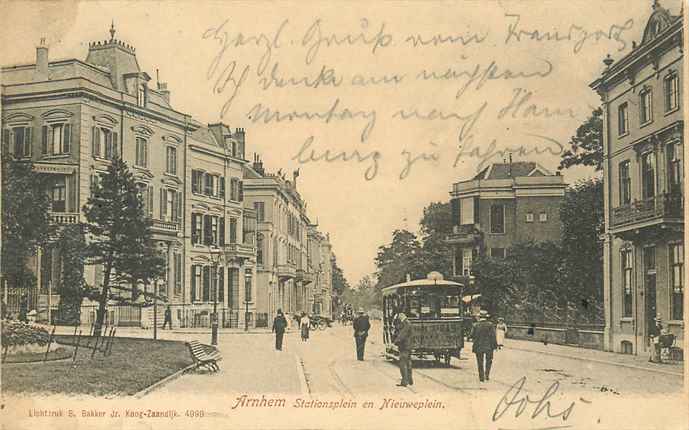 Herzl. Gruß vom Transport
Ich denke am nächsten
Montag nach Ham
burg zu fahren
Arnhem Stationsplein en Nieuweplein.
Lichtdruk S. Bakker Jz. Koog-Zaandijk. 4999